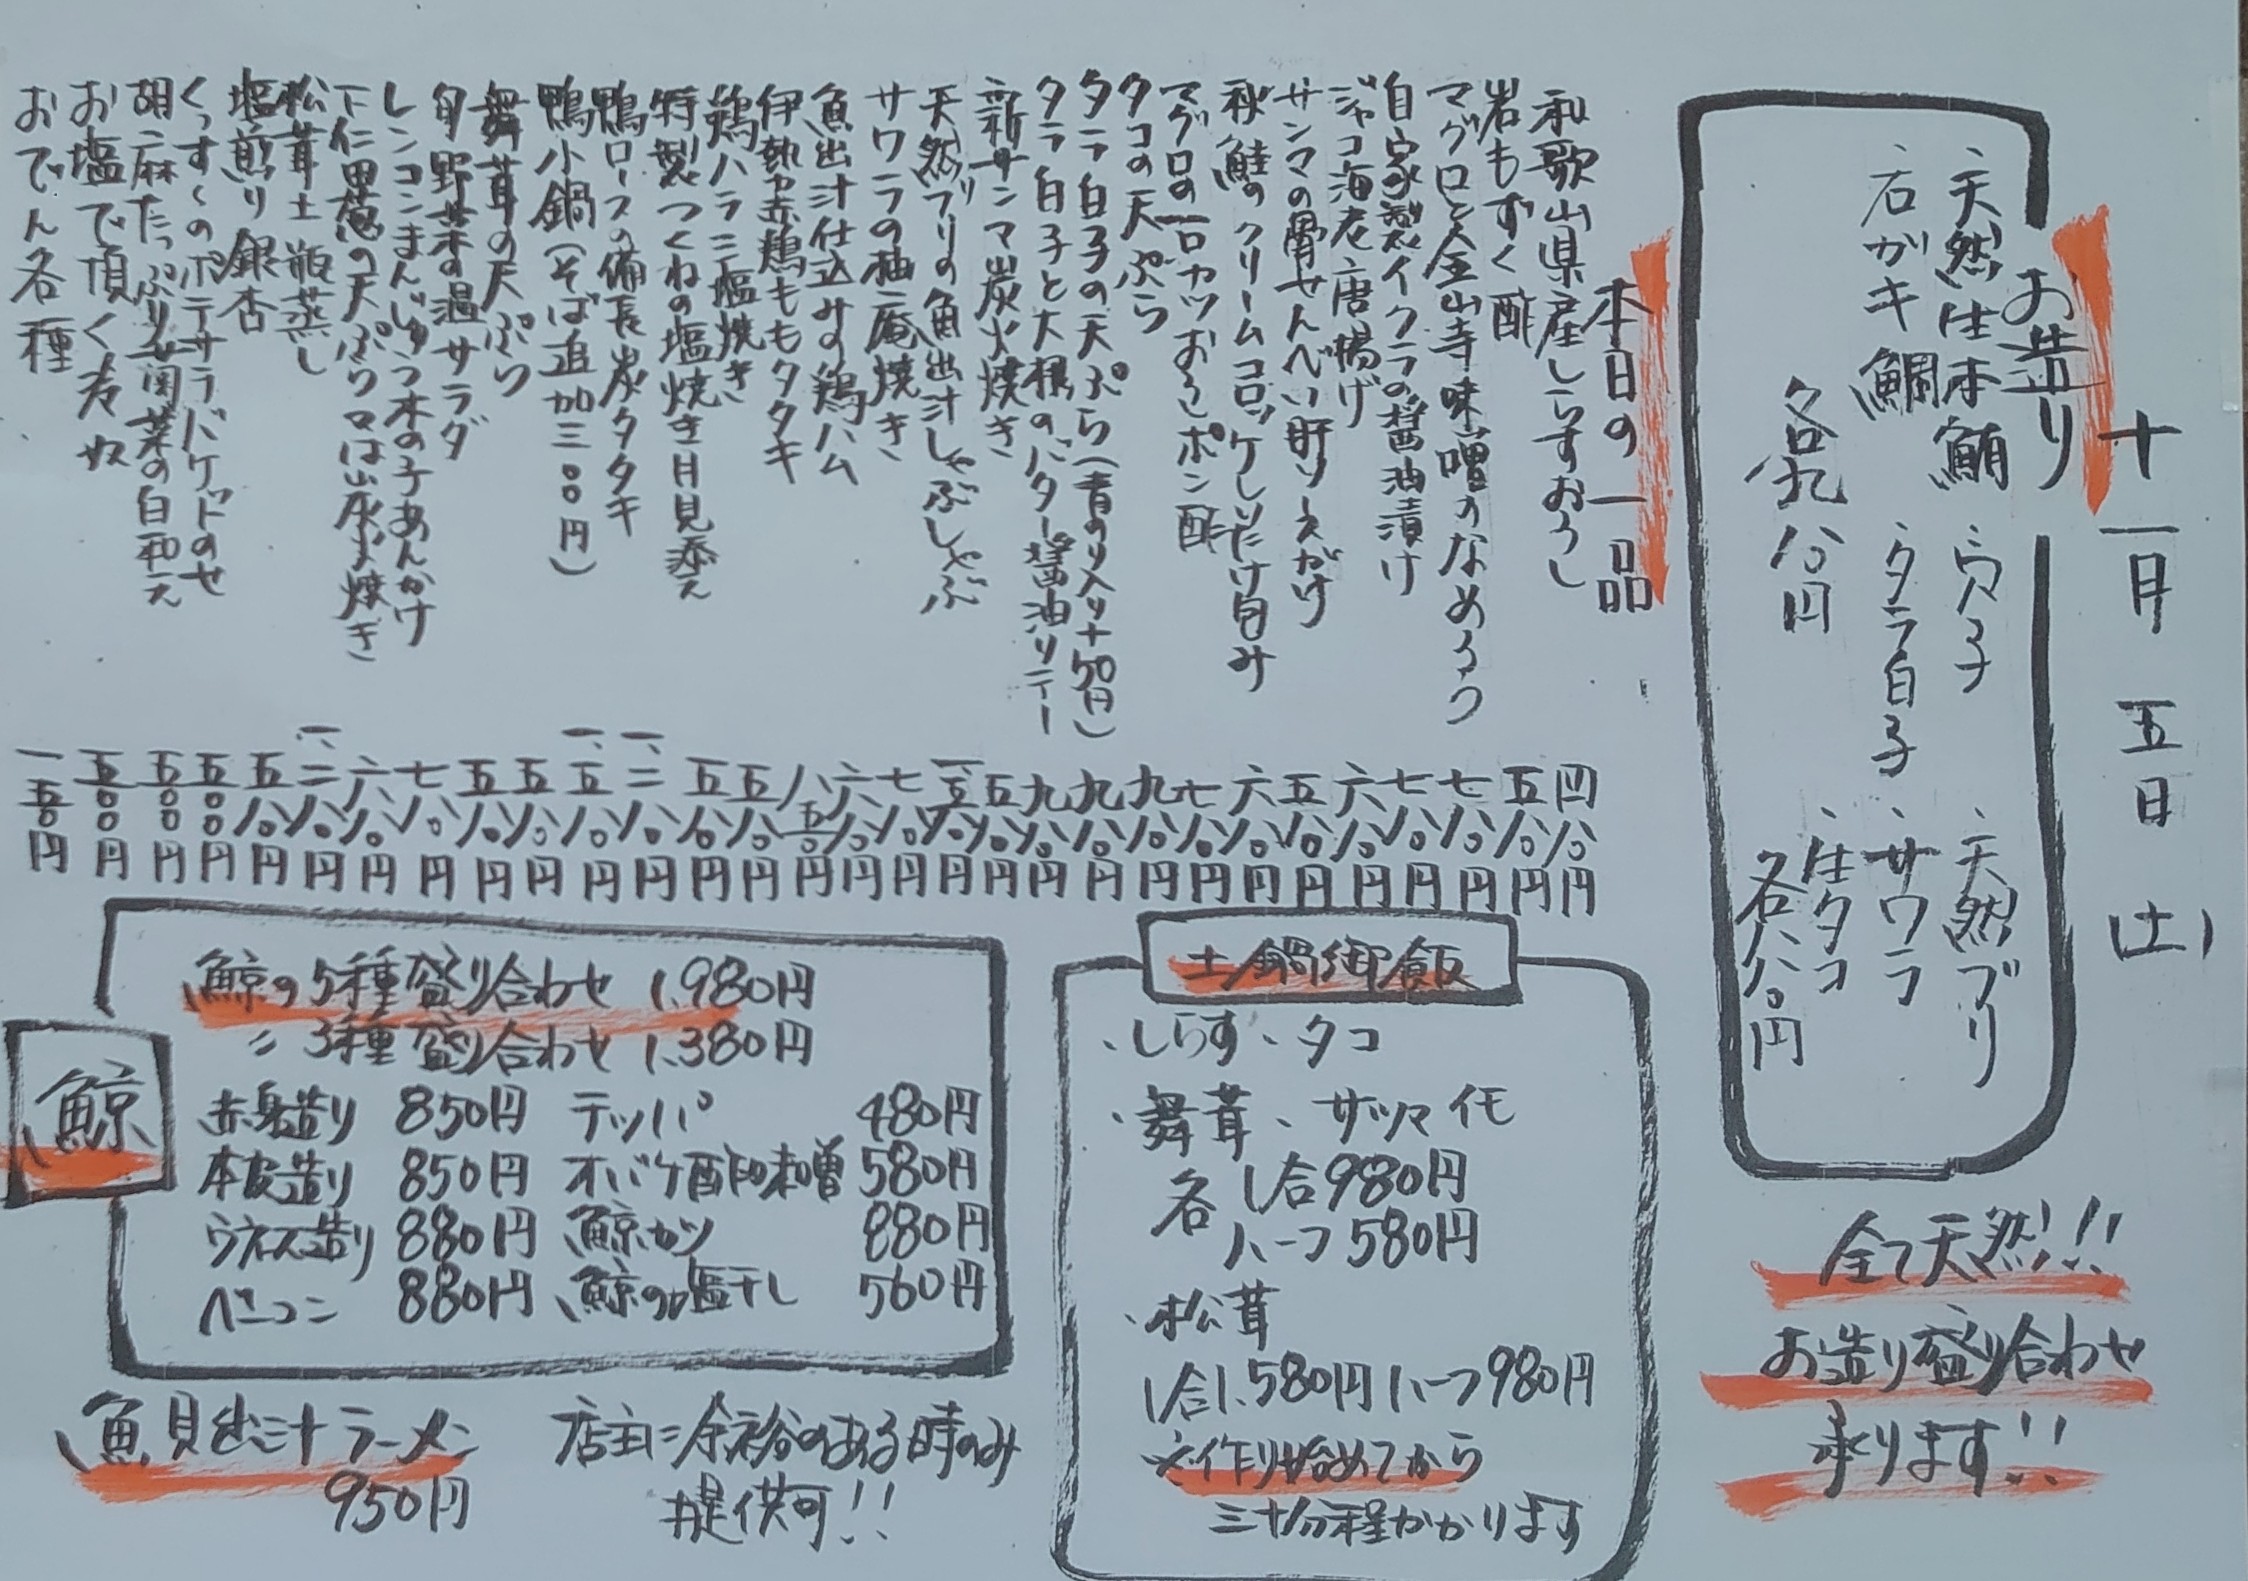 十一月五日(土)
お造り
、天然生本鮪、穴子、天然ブリ
、石ガキ鯛、タラ白子、サワラ
、生タコ
各九八〇円
各八八〇円
全て天然!!
お造り盛り合わせ
承ります!!
本日の一品
和歌山県産しらすおろし 四八〇円
岩もずく酢 五八〇円
マグロと金山寺味噌のなめろう 七八〇円
自家製イクラの醤油漬け 七八〇円
ジャコ海老唐揚げ 六八〇円
サンマの骨せんべい肝ソースがけ 五八〇円
秋鮭のクリームコロッケしいたけ旨み 六八〇円
マグロの一口カツおろしポン酢 七八〇円
タコの天ぷら 九八〇円
タラ白子の天ぷら(青のり入り+50円) 九八〇円
タラ白子と大根のバター醤油ソテー 九八〇円
新サンマ炭火焼き 五八〇円
天然ブリの魚出汁しゃぶしゃぶ
サワラの柚庵焼き 七八〇円
魚出汁仕込みの鶏ハム 六八〇円
伊勢赤鶏ももタタキ 八五〇円
鶏ハラミ塩焼き 五八〇円
特製つくねの塩焼き月見添え 五八〇円
鴨ロースの備長炭タタキ 一、二八〇円
鴨小鍋(そば追加三〇〇円) 一、五八〇円
舞茸の天ぷら 五八〇円
旬野菜の温サラダ 五八〇円
レンコンまんじゅう木の子あんかけ 七八〇円
下仁田葱の天ぷら又は炭火焼き 六八〇円
松茸土瓶蒸し 一、二八〇円
塩煎り銀杏 五八〇円
くっす〜のポテサラバケットのせ 五〇〇円
胡麻たっぷり春菊菜の白和え 五〇〇円
お塩で頂く冷奴 五〇〇円
おでん各種 一五〇円
土鍋御飯
、しらす、タコ
、舞茸、サツマイモ
各1合980円
ハーフ580円
、松茸
1合1.580円ハーフ980円
※作り始めてから
三十分程かかります
鯨
鯨の5種盛り合わせ 1.980円
〃3種盛り合わせ 1.380円
赤身造り 850円 テッパ 480円
本皮造り 850円 オバケ酢味噌 580円
ウネス造り 880円 鯨カツ 880円
ベーコン 880円 鯨の塩干し 560円
、魚貝出汁ラーメン
950円
店主に余裕のある時のみ
提供可!!